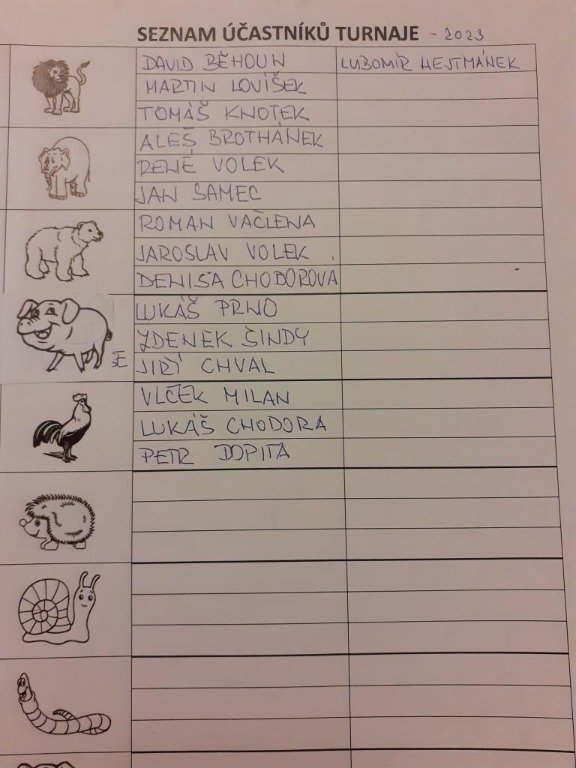 SEZNAM ÚČASTNÍKŮ TURNAJE - 2023
DAVID BĚHOUN LUBOMÍR HEJTMÁNEK
MARTIN LOVÍŠEK
TOMÁŠ KNOTEK
ALEŠ BROTHÁNEK
RENÉ VOLEK
JAN SAMEC
ROMAN VAČLENA
JAROSLAV VOLEK
DENISA CHODOROVA
LUKÁŠ PRNO
ZDENEK ŠINDY
JIŘÍ CHVAL
VLČEK MILAN
LUKÁŠ CHODORA
PETR DOPITA